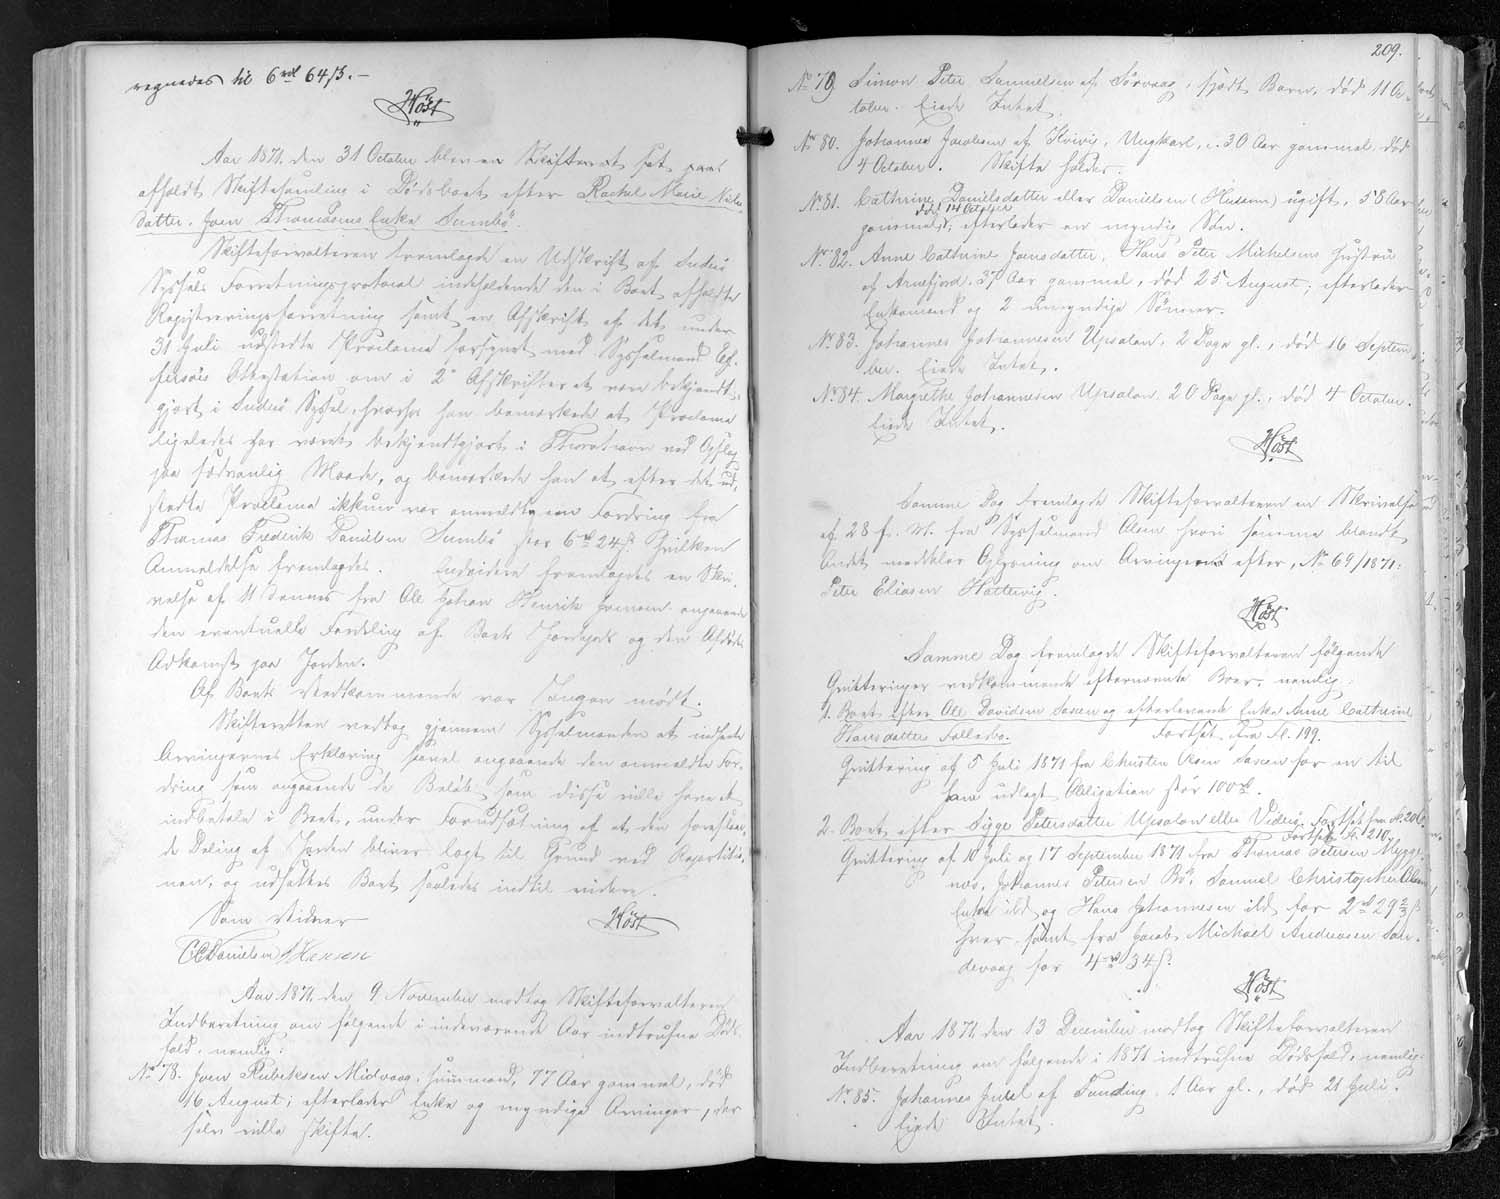 regnedes til 6 rdl 64 ß. —
Høst
Aar 1871, den 31 October blev en Skifteret sat paa
afholdt Skiftesamling i Dødsboet efter Rachel Marie Niclas
datter, Joen Thomasens Enke Sumbø.
Skifteforvalteren fremlagde en Udskrift af Suderø
Syssels Forretningsprotocol indeholdende den i Boet afholdte
Registreringsforretning samt en Afskrift af det under
31 Juli udstedte Proclama forsynet med Sysselmand Ef-
fersøes Attestation om i 2 Afskrifter at være bekjendt-
gjort i Suderø Syssel, hvorhos han bemærkede at Proclama
ligeledes har været bekjendtgjort i Thorshavn ved Opslag
paa sædvanlig Maade, og bemærkede han at efter det ud-
stedte Proclama ikkun var anmeldt een Fordring fra
Thomas Frederik Danielsen Sumbø stor 6 rdl 24 ß. Hvilken
Anmeldelse fremlagdes. Endvidere fremlagdes en Skri-
velse af 11 Dennes fra Ole Johan Henrik Joensen angaaende
den eventuelle Fordeling af Boets Jordgods og den Afdødes
Adkomst paa Jorden.
Af Boets Vedkommende var Ingen mødt.
Skifteretten vedtog gjennem Sysselmanden at indhente
Arvingernes Erklæring saavel angaaende den anmeldte For-
dring som angaaende de Beløb som disse ville have at
indbetale i Boet, under Forudsætning af at den foreslaae-
de Deling af Jorden bliver lagt til Grund ved Repartitio-
nen, og udsattes Boet saaledes indtil videre.
Som Vidner Høst
CCDanielsen JHansen
Aar 1871, den 9 November modtog Skifteforvalteren
Indberetning om følgende i indeværende Aar indtrufne Døds-
fald, nemlig:
No 78. Joen Rubeksen Midvaag, Huusmand, 77 Aar gammel, død
16 August; efterlader Enke og myndige Arvinger, der
selv ville skifte.
209.
No 79 Simon Peter Samuelsen af Sørvaag, født Barn, død 11 Oc-
tober. Eiede Intet.
No 80. Johannes Jacobsen af Kvivig, Ungkarl, c. 30 Aar gammel, død
4 October. Skifte holdes.
No 81. Cathrine Danielsdatter eller Danielsen (Husum) ugift, 58 Aar
død 14 October
gammel; efterlader en myndig Søn.
No 82. Anne Cathrine Joensdatter, Hans Peter Michelsens Hustru
af Arnefjord, 37 Aar gammel, død 25 August; efterlader
Enkemand og 2 umyndige Sønner.
No 83. Johannes Johannesen Upsalon, 2 Dage gl., død 16 Septem-
ber. Eiede Intet.
No 84. Margrethe Johannesen Upsalon, 20 Dage gl., død 4 October.
Eiede Intet.
Høst
Samme Dag fremlagde Skifteforvalteren en Skrivelse
af 28 f. M. fra Sysselmand Olsen hvori samme blandt
Andet meddeler Oplysning om Arvingerne efter, No 69/1871:
Peter Eliasen Hattervig.
Høst
Samme Dag fremlagde Skifteforvalteren følgende
Qvitteringer vedkommende efternævnte Boer, nemlig:
1. Boet efter Ole Davidsen Saxen og efterlevende Enke Anne Cathrine
Hansdatter Selletræ. Fortsat fra Fl. 199.
Qvittering af 5 Juli 1871 fra Christen Olsen Saxen for en til
ham udlagt Obligation stor 100 rdl.
2. Boet efter Sigge Petersdatter Upsalon eller Viderø. Fortsat fra Fl. 206.
Fortsat Fl. 210.
Qvittering af 10 Juli og 17 September 1871 fra Thomas Petersen Mygge-
næs, Johannes Petersen Bø, Samuel Christopher Olsens
Enke ibd og Hans Johannesen ibd for 2 rdl 29 2/3 ß
hver, samt fra Jacob Mickael Andreasen San-
devaag for 4 rdl 34 ß.
Høst
Aar 1871, den 13 December modtog Skifteforvalteren
Indberetning om følgende i 1871 indtrufne Dødsfald, nemlig:
No 85. Johannes Juul af Funding, 1 Aar gl., død 21 Juli.
Eiede Intet.